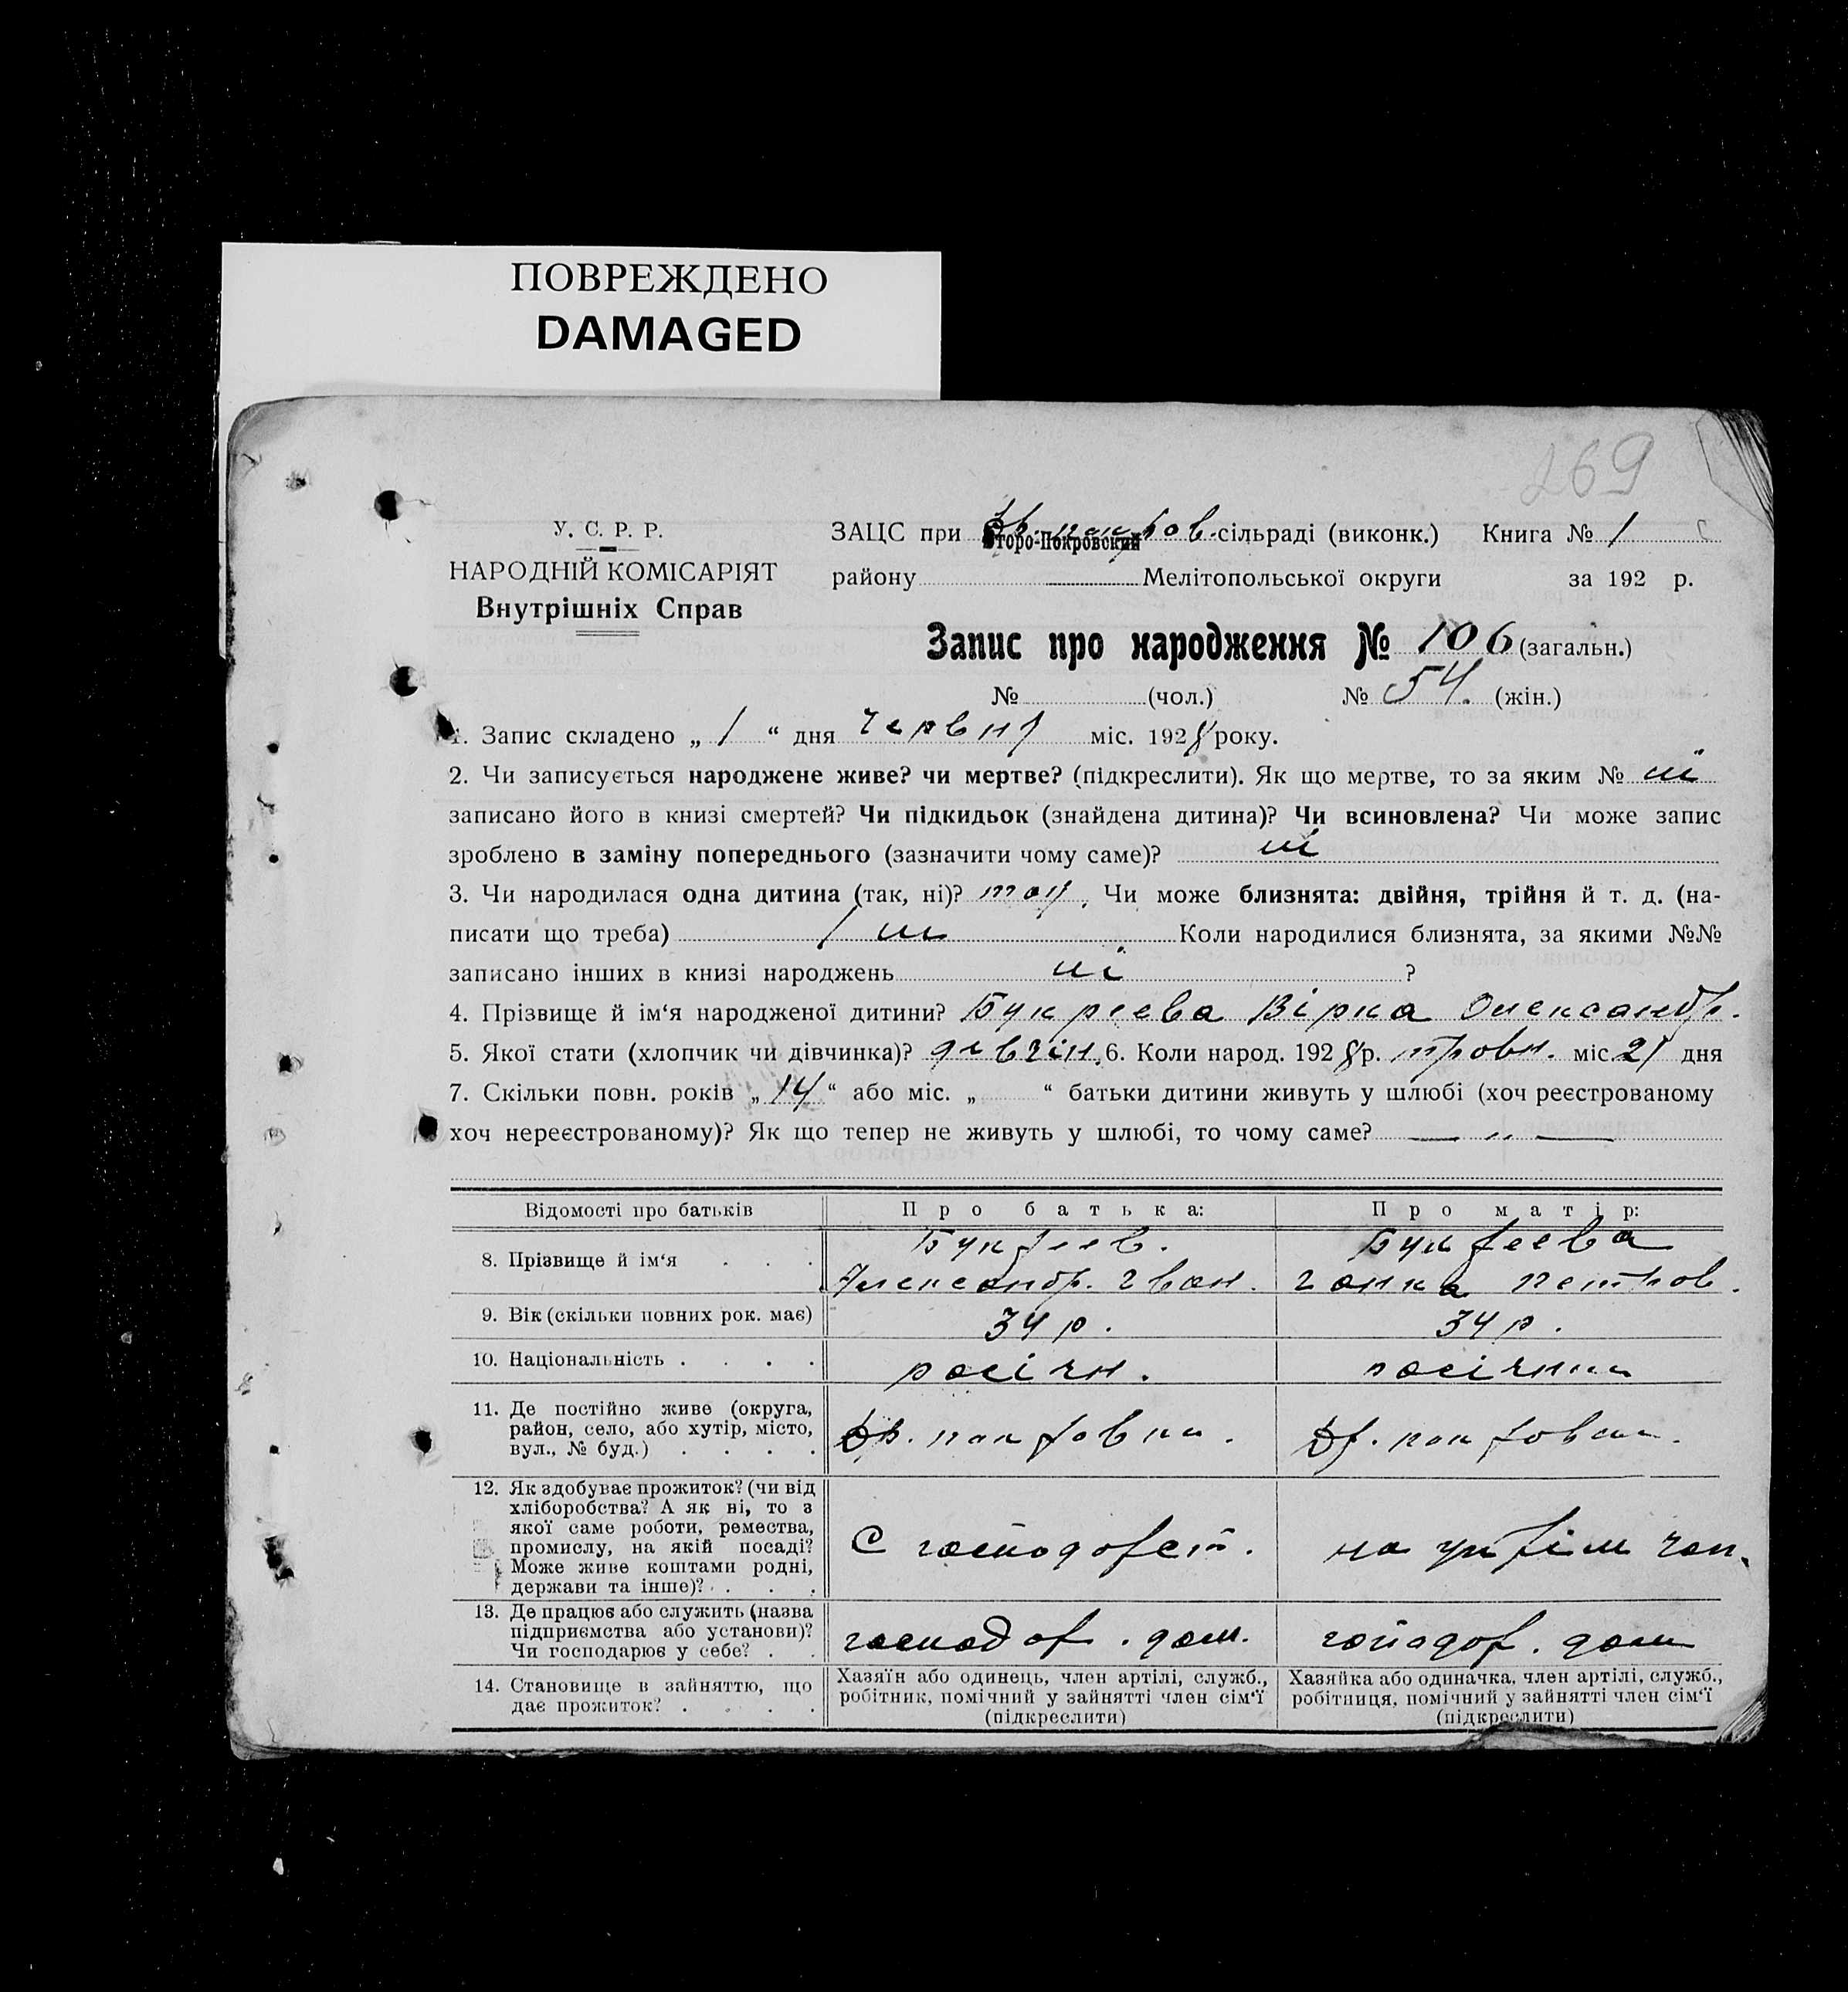 ПОВРЕЖДЕНО
DAMAGED
269
У. С. Р. Р.
НАРОДНІЙ КОМІСАРІЯТ
Внутрішніх Справ
ЗАЦС при Второ-Покровский сільраді (виконк.) Книга № 1
району Мелітопольської округи за 192 р.
Запис про народження № 106 (загальн.)
№ (чол.) № 54. (жін.)
1. Запис складено „ 1 “ дня червня міс. 1928 року.
2. Чи записується народжене живе? чи мертве? (підкреслити). Як що мертве, то за яким № ні
записано його в книзі смертей? Чи підкидьок (знайдена дитина)? Чи всиновлена? Чи може запис
зроблено в заміну попереднього (зазначити чому саме)? ні
3. Чи народилася одна дитина (так, ні)? Чи може близнята: двійня, трійня й т. д. (на-
писати що треба) Коли народилися близнята, за якими №№
записано інших в книзі народжень ні ?
4. Прізвище й ім‘я народженої дитини? Букреева Вірка Олександр.
5. Якої стати (хлопчик чи дівчинка)? дівчін. 6. Коли народ. 1928 р. міс. 21 дня
7. Скільки повн. років „ 14 “ або міс. „ “ батьки дитини живуть у шлюбі (хоч реєстрованому
хоч нереєстрованому)? Як що тепер не живуть у шлюбі, то чому саме? — „ —
Відомості про батьків Про батька: Про матір:
8. Прізвище й ім‘я . . . Букреев. Букреева
Александр. Іван. Ганка Петров.
9. Вік (скільки повних рок. має) 34 р. 34 р.
10. Національність . . . . росіян. росіянки
11. Де постійно живе (округа,
район, село, або хутір, місто,
вул., № буд.) . . . . Вр. покровки. Вр. покровки.
12. Як здобуває прожиток? (чи від
хліборобства? А як ні, то з
якої саме роботи, ремества,
промислу, на якій посаді?
Може живе коштами родні,
держави та інше)? . . . С господорст. на
13. Де працює або служить (назва
підприємства або установи)?
Чи господарює у себе? . . господор. дом. господор. дом
14. Становище в зайняттю, що
дає прожиток? . . . .
Хазяїн або одинець, член артілі, служб.,
робітник, помічний у зайнятті член сім‘ї
(підкреслити)
Хазяйка або одиначка, член артілі, служб.,
робітниця, помічний у зайнятті член сім‘ї
(підкреслити)